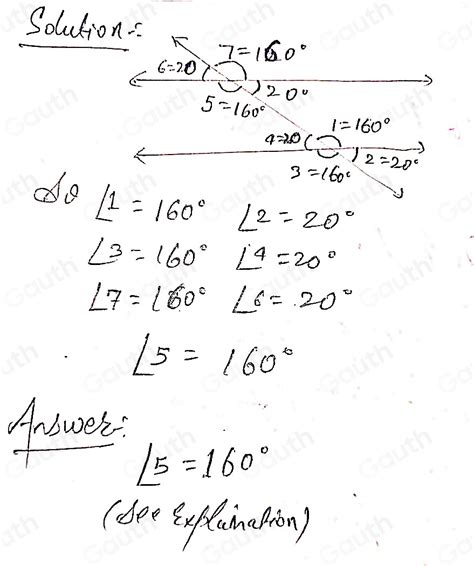 Solution:-
7=160°
6=20
20°
5=160°
4=20
1=160°
2=20°
3=160°
So ∠1 = 160° ∠2 = 20°
∠3 = 160° ∠4 = 20°
∠7 = 160° ∠6 = 20°
∠5 = 160°
Answer:-
∠5 = 160°
(See Explaination)
Gauth